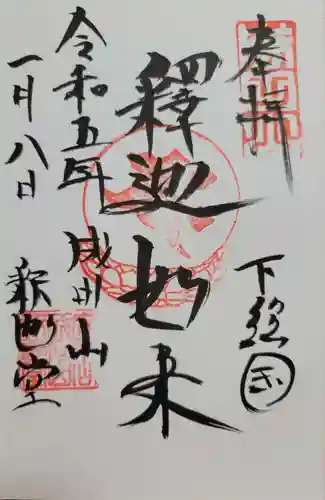 奉拝
下総国
釋迦如来
令和五年
一月八日
成田山
釈迦堂